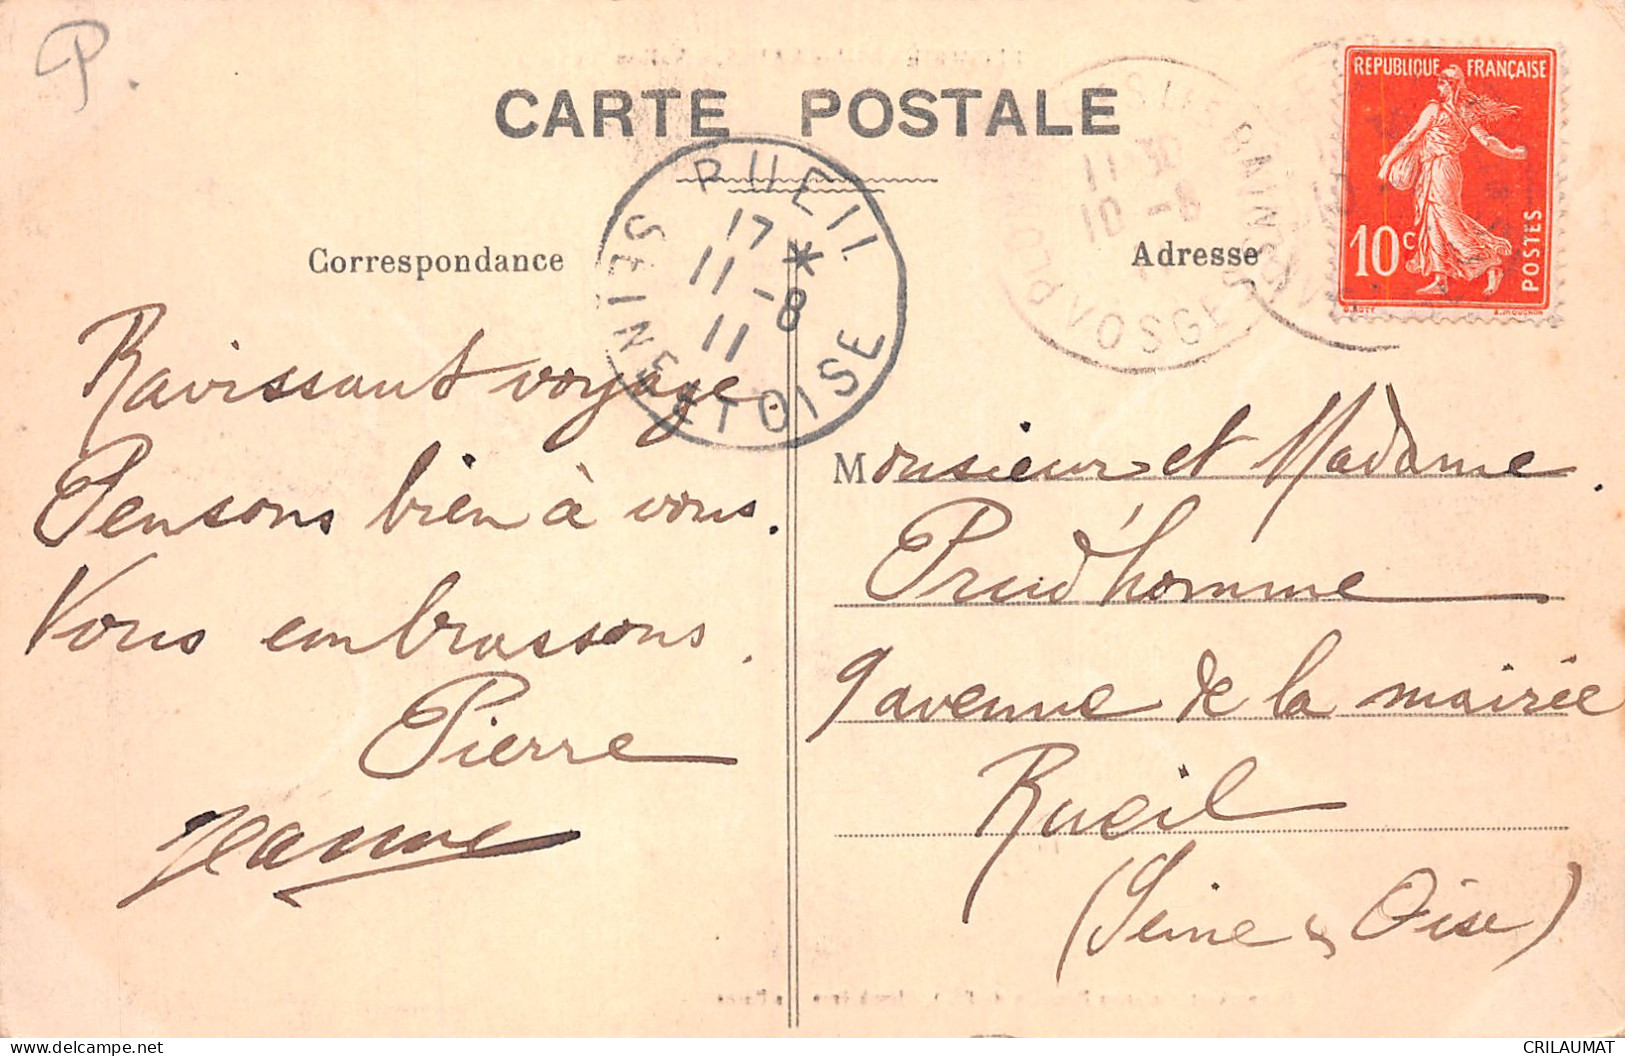 P.
CARTE POSTALE
REPUBLIQUE FRANÇAISE
10 c
POSTES
RUEIL
17 *
11 - 8
11
SEINE ET OISE
PLOMBIERES LES BAINS
VOSGES
11
10 - 8
Correspondance
Adresse
Ravissant voyage.
Pensons bien à vous.
Vous embrassons.
Pierre
Jeanne
Monsieur et Madame
Prud'homme
9 avenue de la mairie
Rueil
(Seine & Oise)
CRILAUMAT